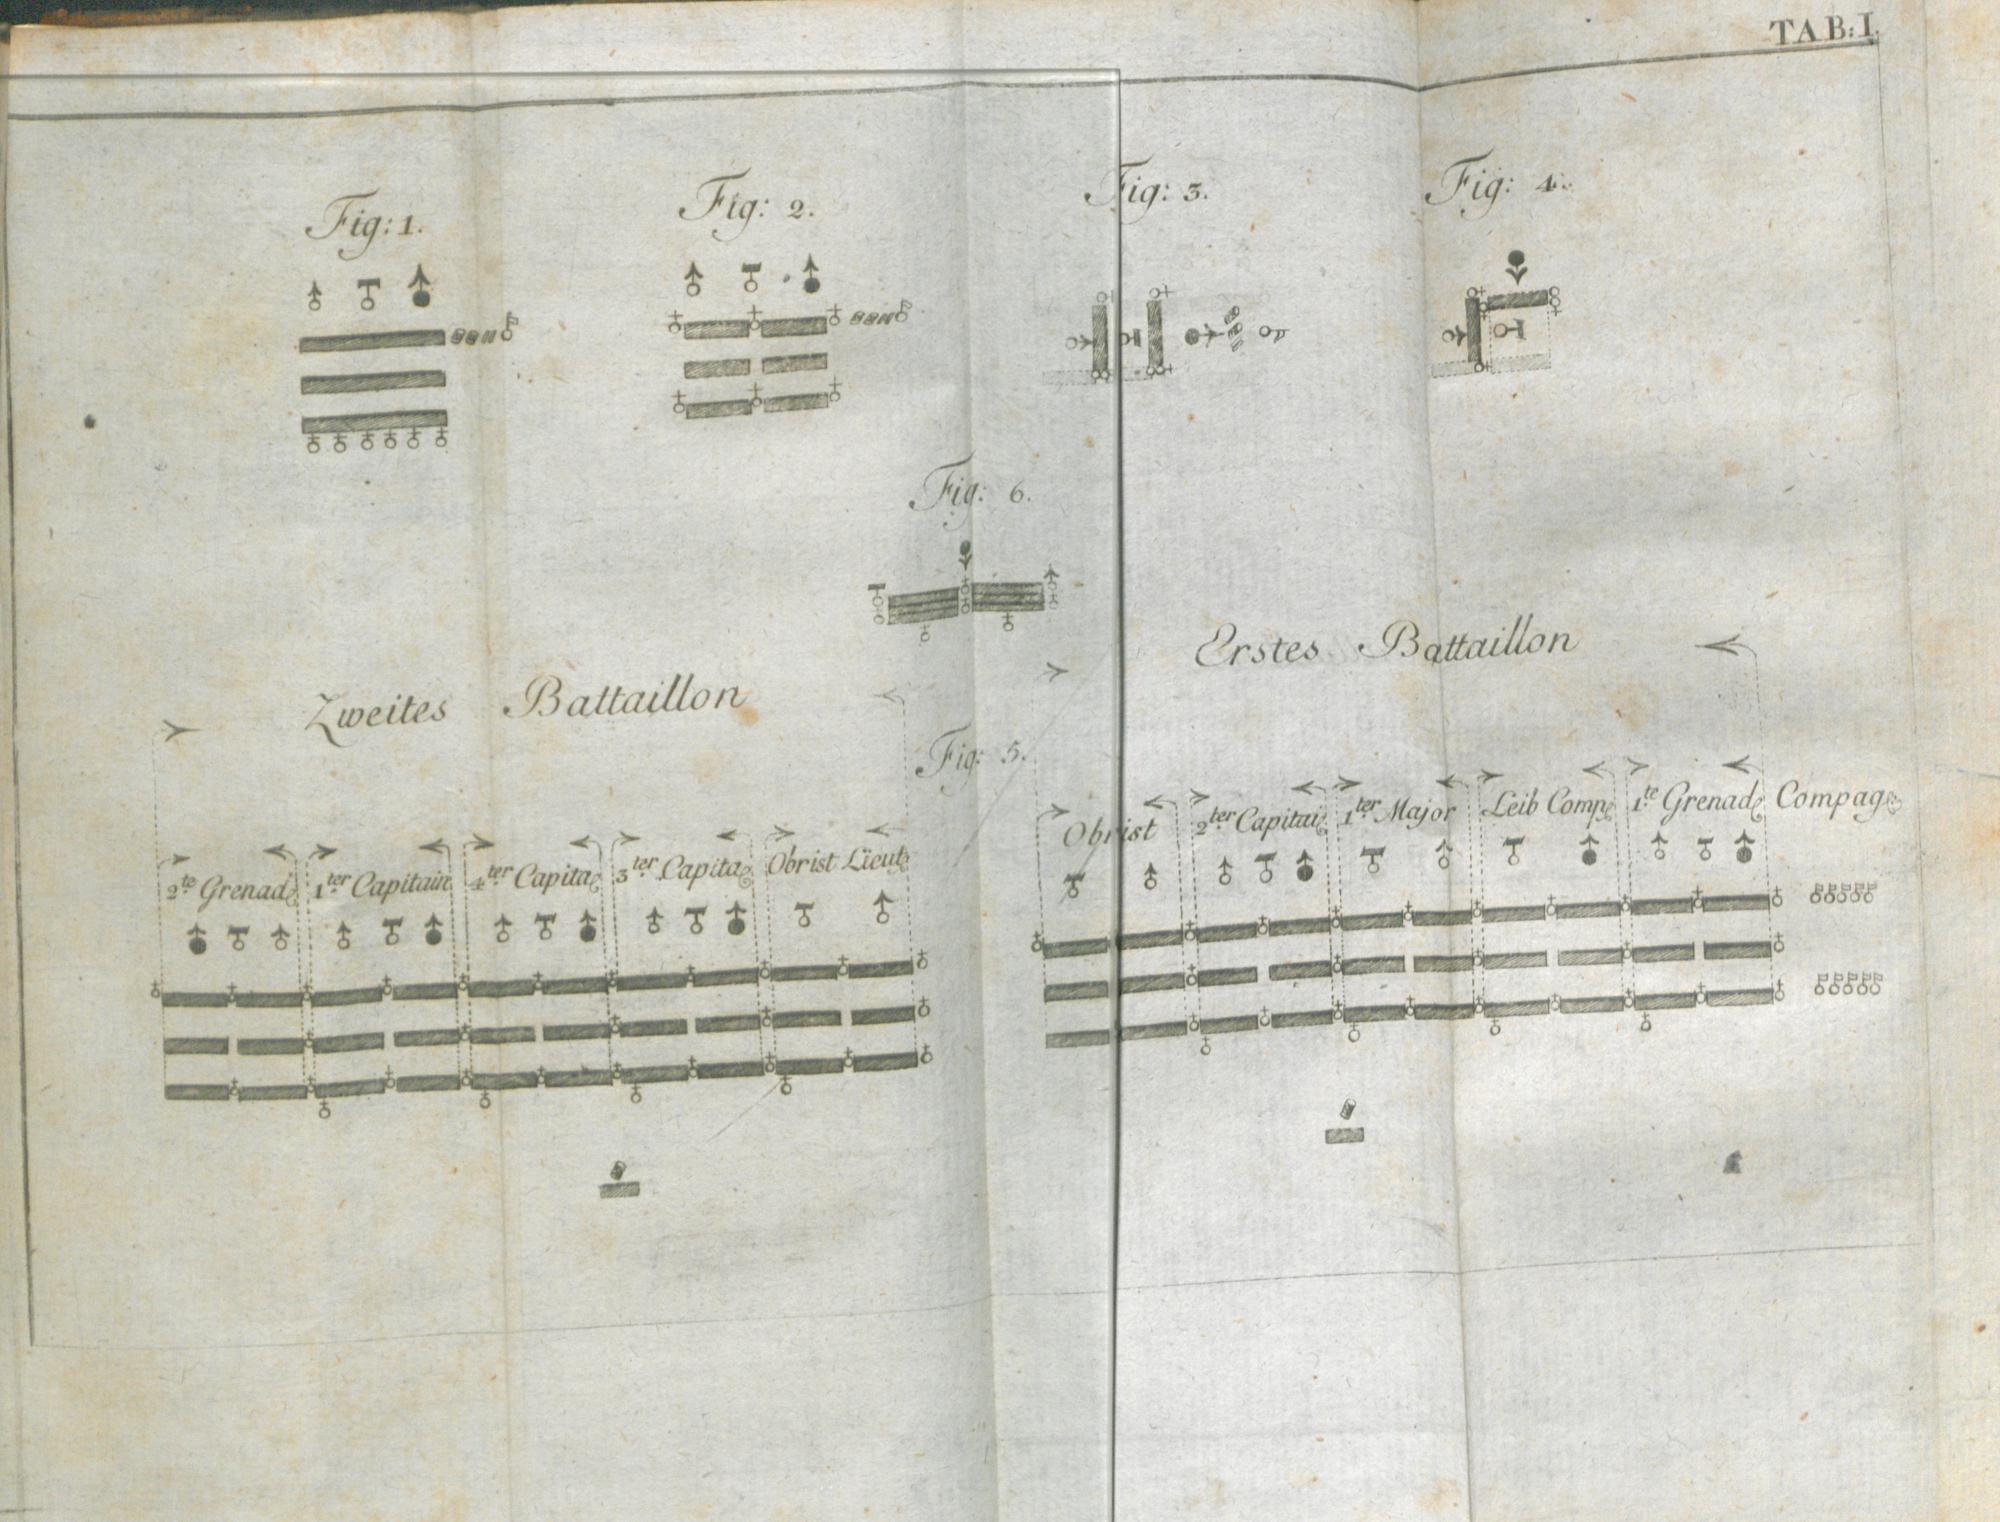 TAB: I.
Fig: 1.
Fig: 2.
Fig: 3.
Fig: 4.
Fig: 6.
Zweites Battaillon
Erstes Battaillon
Fig: 5.
2te Grenad
1ter Capitain
4ter Capita
3ter Capita
Obrist Lieut
Obrist
2ter Capitai
1ter Major
Leib Comp
1te Grenad Compag